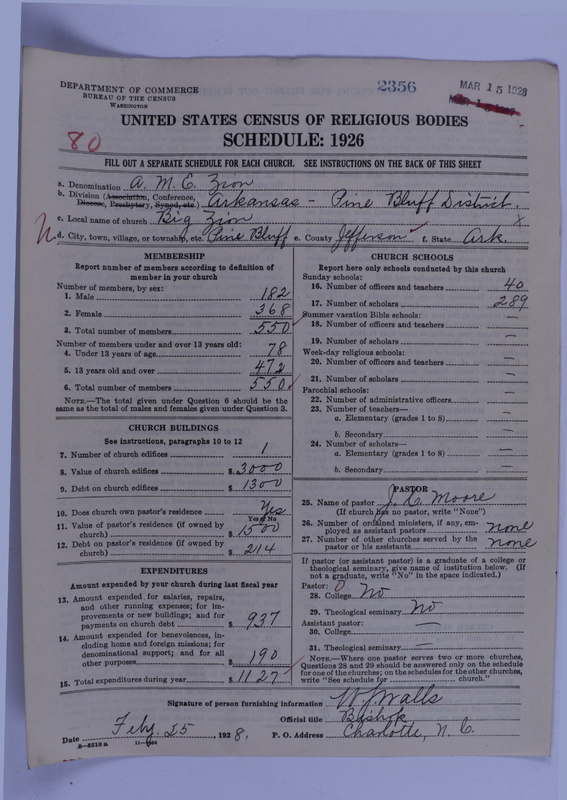 DEPARTMENT OF COMMERCE
BUREAU OF THE CENSUS
WASHINGTON
2356
MAR 15 1928
UNITED STATES CENSUS OF RELIGIOUS BODIES
SCHEDULE: 1926
80
FILL OUT A SEPARATE SCHEDULE FOR EACH CHURCH. SEE INSTRUCTIONS ON THE BACK OF THIS SHEET
a. Denomination A. M. E. Zion
b. Division (Association, Conference, Diocese, Presbytery, Synod, etc. Arkansas - Pine Bluff District.
c. Local name of church Big Zion x
d. City, town, village, or township, etc. Pine Bluff e. County Jefferson f. State Ark.
MEMBERSHIP
Report number of members according to definition of
member in your church
Number of members, by sex:
1. Male 182
2. Female 368
3. Total number of members 550
Number of members under and over 13 years old:
4. Under 13 years of age 78
5. 13 years old and over 472
6. Total number of members 550
NOTE.—The total given under Question 6 should be
same as the total of males and females given under Question 3.
CHURCH BUILDINGS
See instructions, paragraphs 10 to 12
7. Number of church edifices 1
8. Value of church edifices $ 3000
9. Debt on church edifices $ 1300
10. Does church own pastor's residence? Yes
Yes or No
11. Value of pastor's residence (if owned by
church) $ 1500
12. Debt on pastor's residence (if owned by
church) $ 214
EXPENDITURES
Amount expended by your church during last fiscal year
13. Amount expended for salaries, repairs,
and other running expenses; for im-
provements or new buildings; and for
payments on church debt $ 937
14. Amount expended for benevolences, in-
cluding home and foreign missions; for
denominational support; and for all
other purposes $ 190
15. Total expenditures during year $ 1127
CHURCH SCHOOLS
Report here only schools conducted by this church
Sunday schools:
16. Number of officers and teachers 40
17. Number of scholars 289
Summer vacation Bible schools:
18. Number of officers and teachers —
19. Number of scholars —
Week-day religious schools:
20. Number of officers and teachers —
21. Number of scholars —
Parochial schools:
22. Number of administrative officers —
23. Number of teachers—
a. Elementary (grades 1 to 8) —
b. Secondary —
24. Number of scholars—
a. Elementary (grades 1 to 8) —
b. Secondary —
PASTOR
25. Name of pastor Moore
(If church has no pastor, write "None")
26. Number of ordained ministers, if any, em-
ployed as assistant pastors none
27. Number of other churches served by the
pastor or his assistants none
If pastor (or assistant pastor) is a graduate of a college or
theological seminary, give name of institution below. (If
not a graduate, write "No" in the space indicated.)
Pastor: 0
28. College No
29. Theological seminary No
Assistant pastor: —
30. College
31. Theological seminary —
NOTE.—Where one pastor serves two or more churches,
Questions 28 and 29 should be answered only on the schedule
for one of the churches; on the schedules for the other churches,
write "See schedule for church."
Signature of person furnishing information W J Walls
Official title Bishop
Date Feby. 25, 1928. P. O. Address Charlotte, N. C.